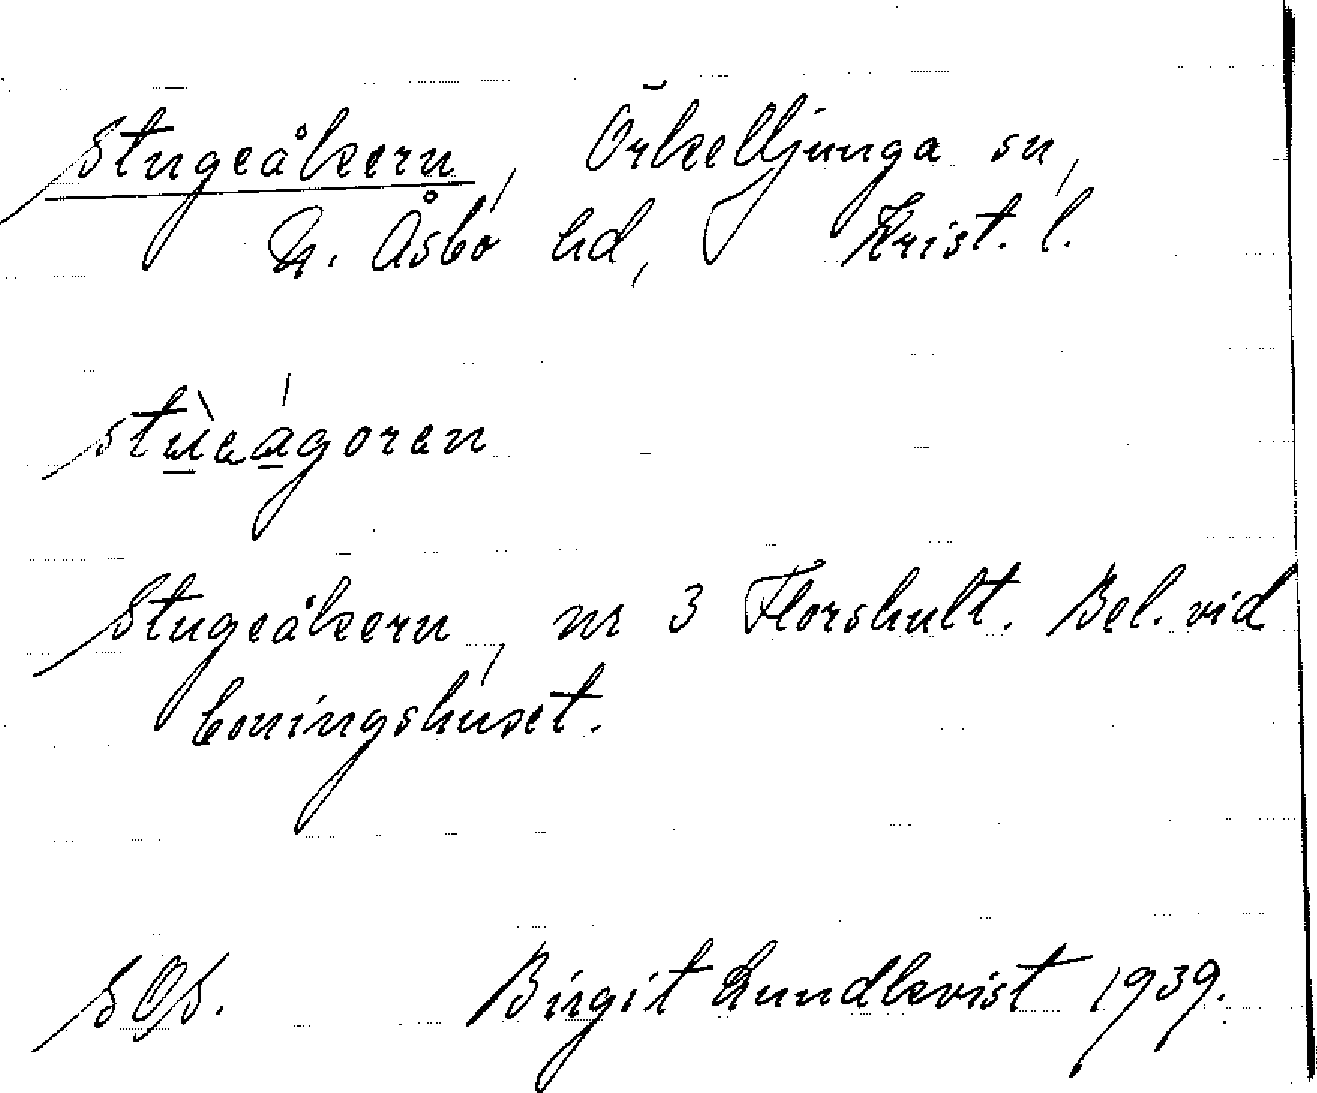 Stugeåkern, Örkelljunga sn,
N. Åsbo hd, Krist. l.
stù̲eá̲goren
Stugeåkern, nr 3 Florshult. Bel. vid
boningshuset.
SOS. Birgit Lundkvist 1939.